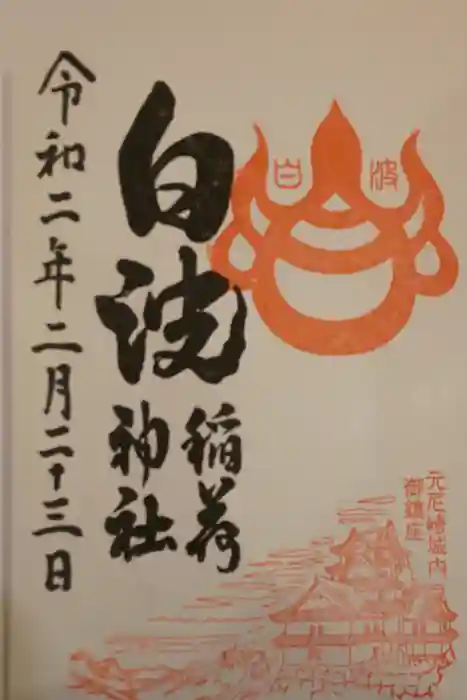 白波
元尼崎城内
御鎮座
白波
稲荷
神社
令和二年二月二十三日